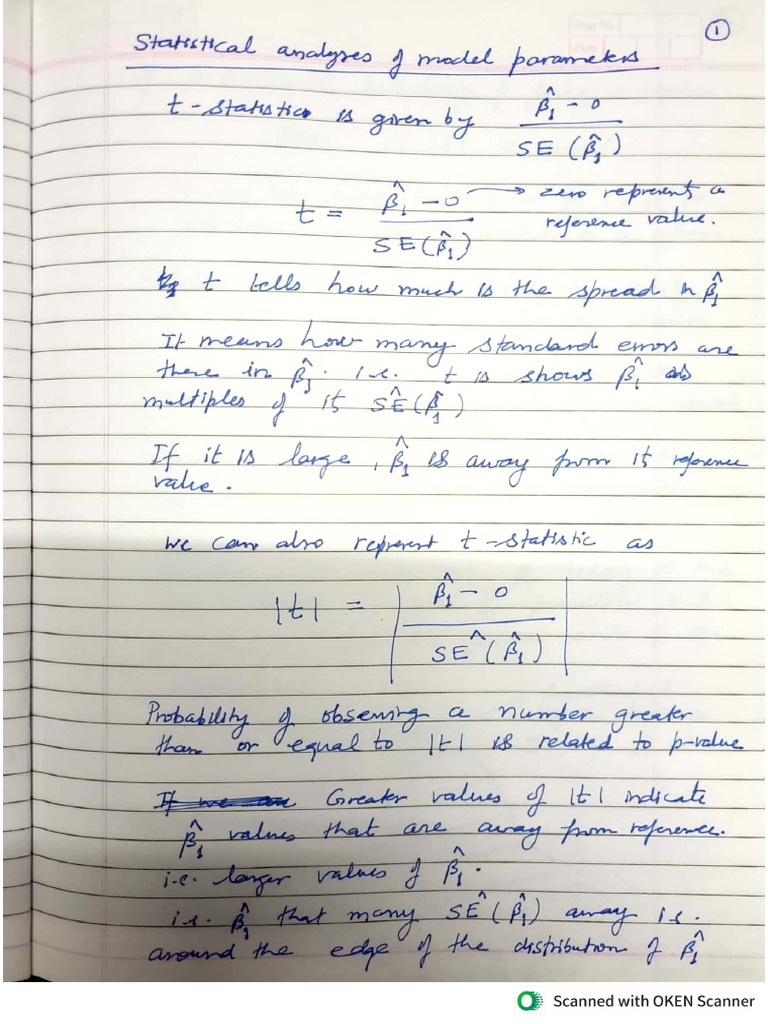 ①
Statistical analyses of model parameters
t-statistic is given by β̂₁ - 0
SE (β̂₁)
t = β̂₁ - 0 → zero represent a
SE(β̂₁) reference value.
t tells how much is the spread in β̂₁
It means how many standard errors are
there in β̂₁. i.e. t is shows β̂₁ as
multiples of it SÊ(β̂₁)
If it is large, β̂₁ is away from it reference
value.
We can also represent t-statistic as
|t| = | β̂₁ - 0
SÊ (β̂₁) |
Probability of observing a number greater
than or equal to |t| is related to p-value
Greater values of |t| indicate
β̂₁ values that are away from reference.
i.e. larger values of β̂₁.
i.e. β̂₁ that many SÊ (β̂₁) away i.e.
around the edge of the distribution of β̂₁
Scanned with OKEN Scanner